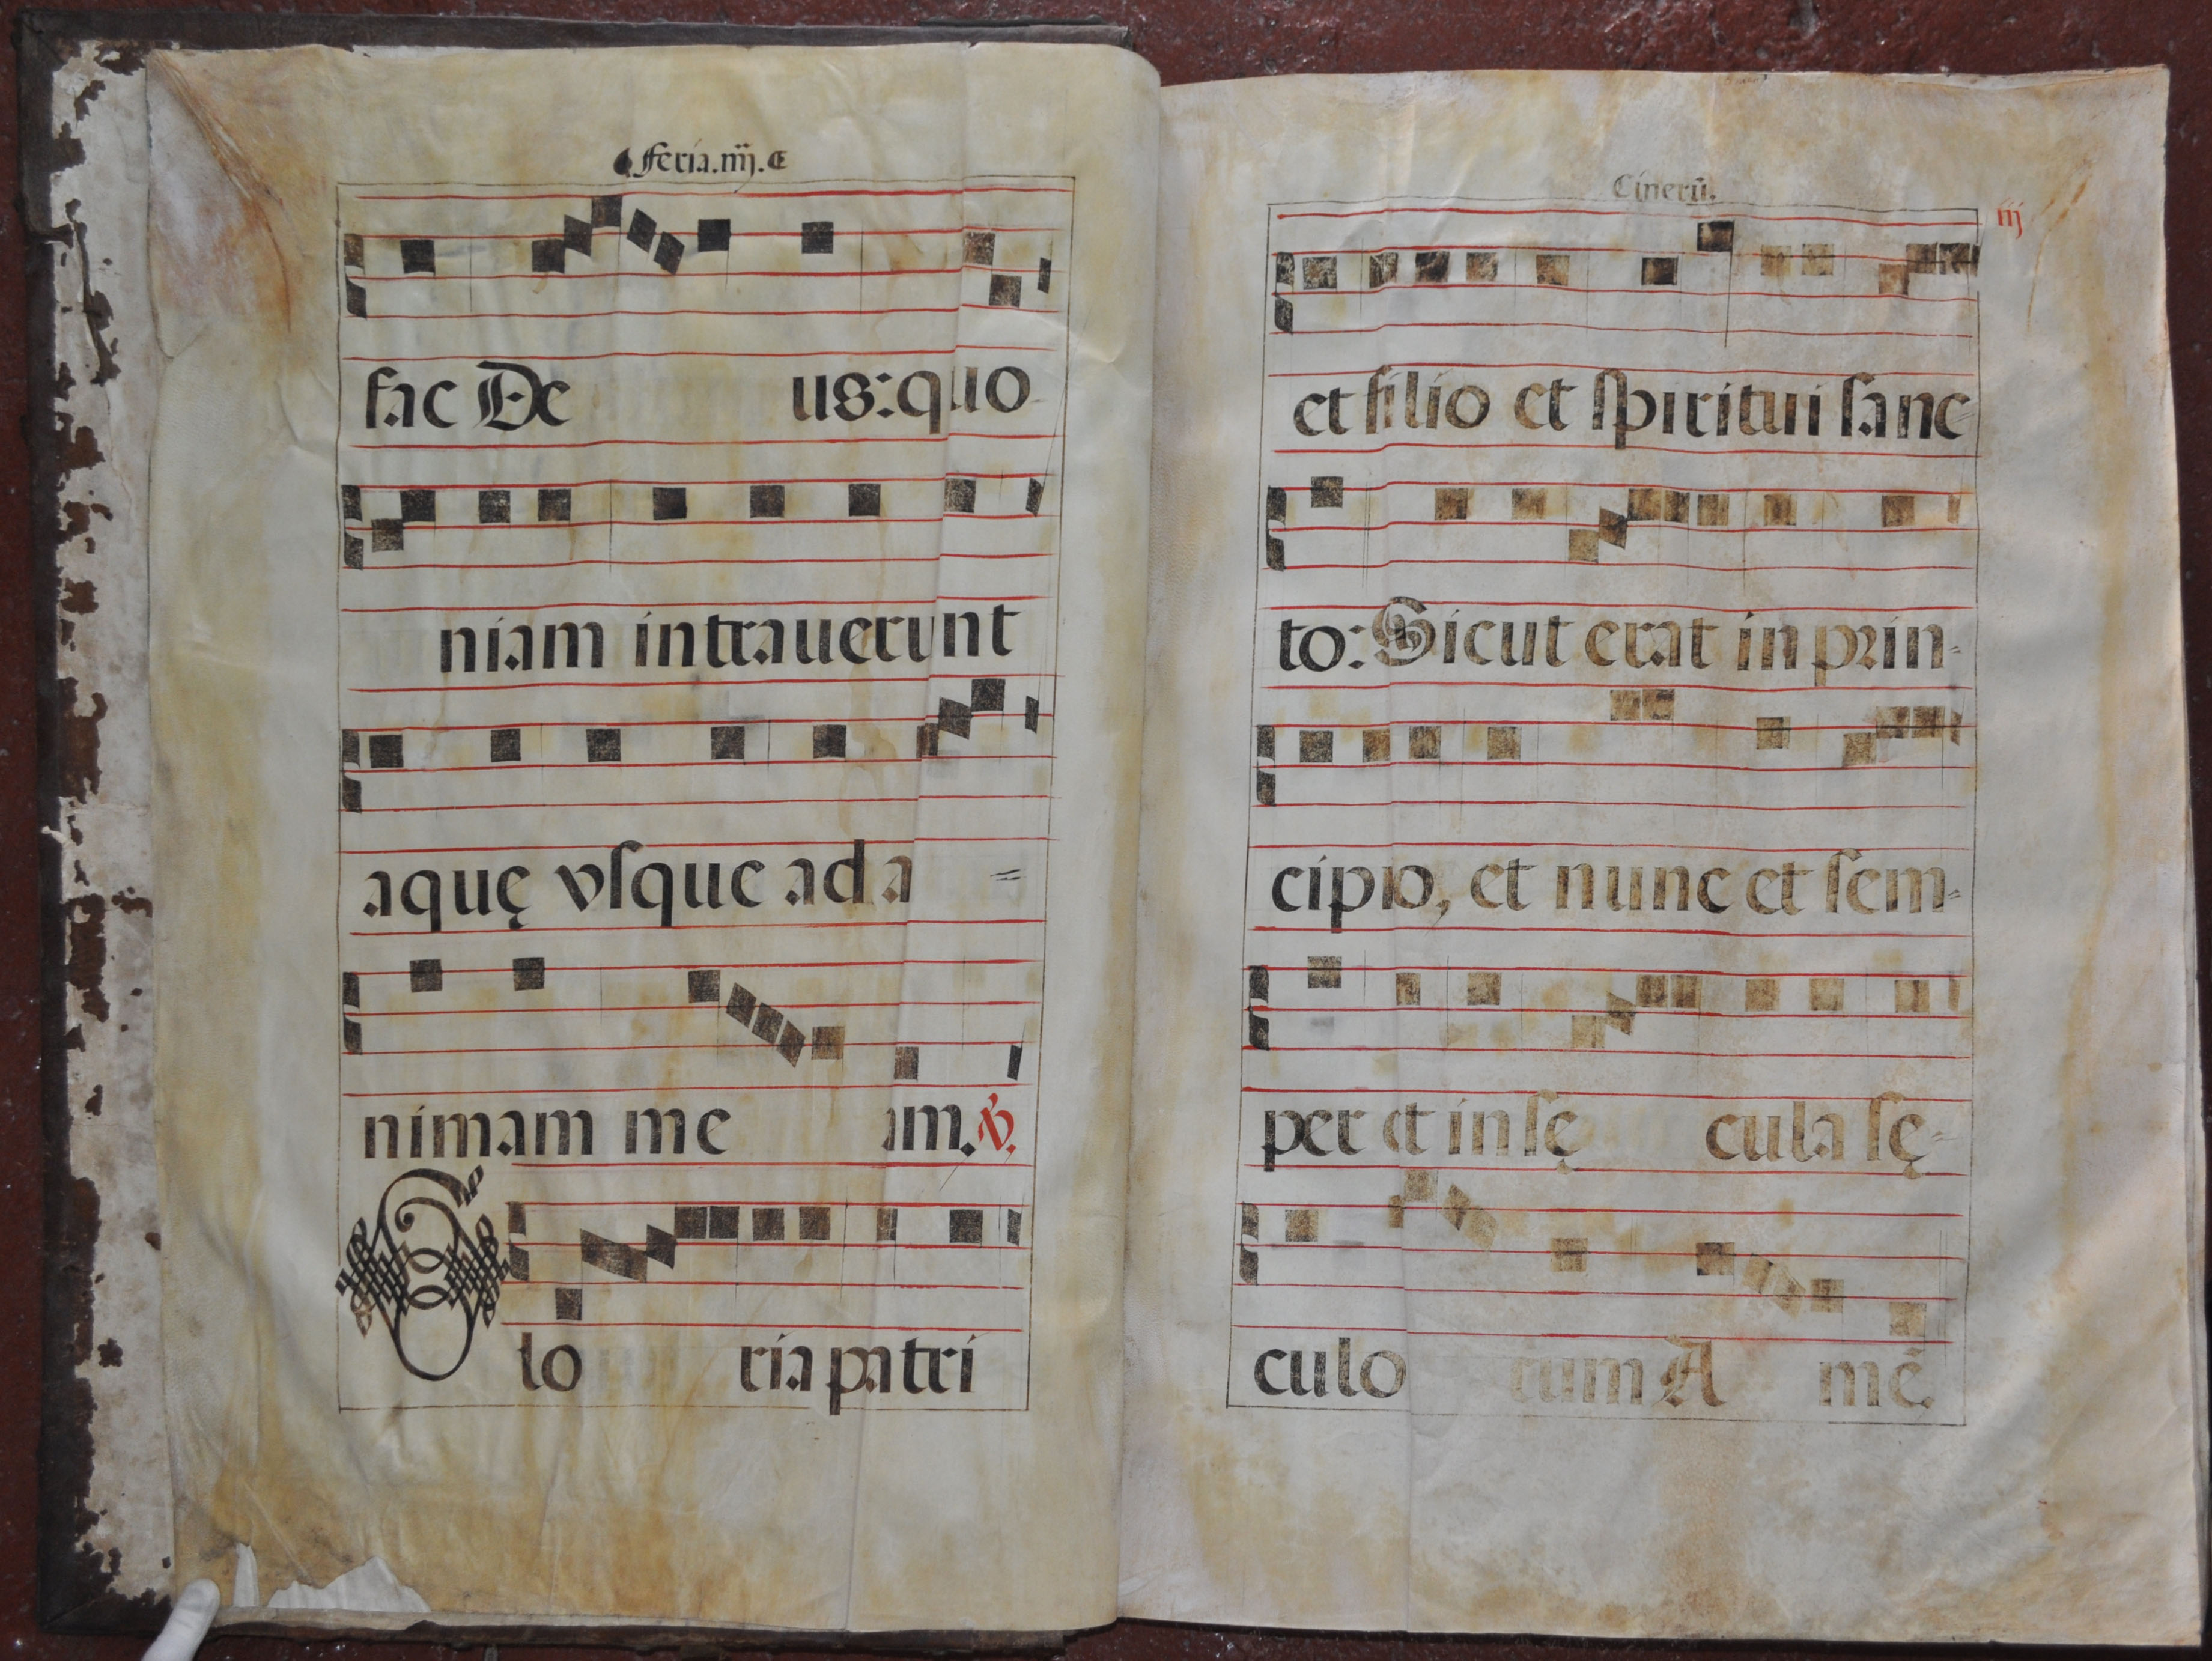 Feria.iiij.
fac De us: quo
niam intrauerunt
aquę vſque ad a =
nimam me am. ℣.
Glo ria patri
Cinerũ.
iij
et filio et ſpiritui ſanc-
to: Sicut erat in prin-
cipio, et nunc et ſem-
per et in ſę cula ſę-
culo rum A mẽ.